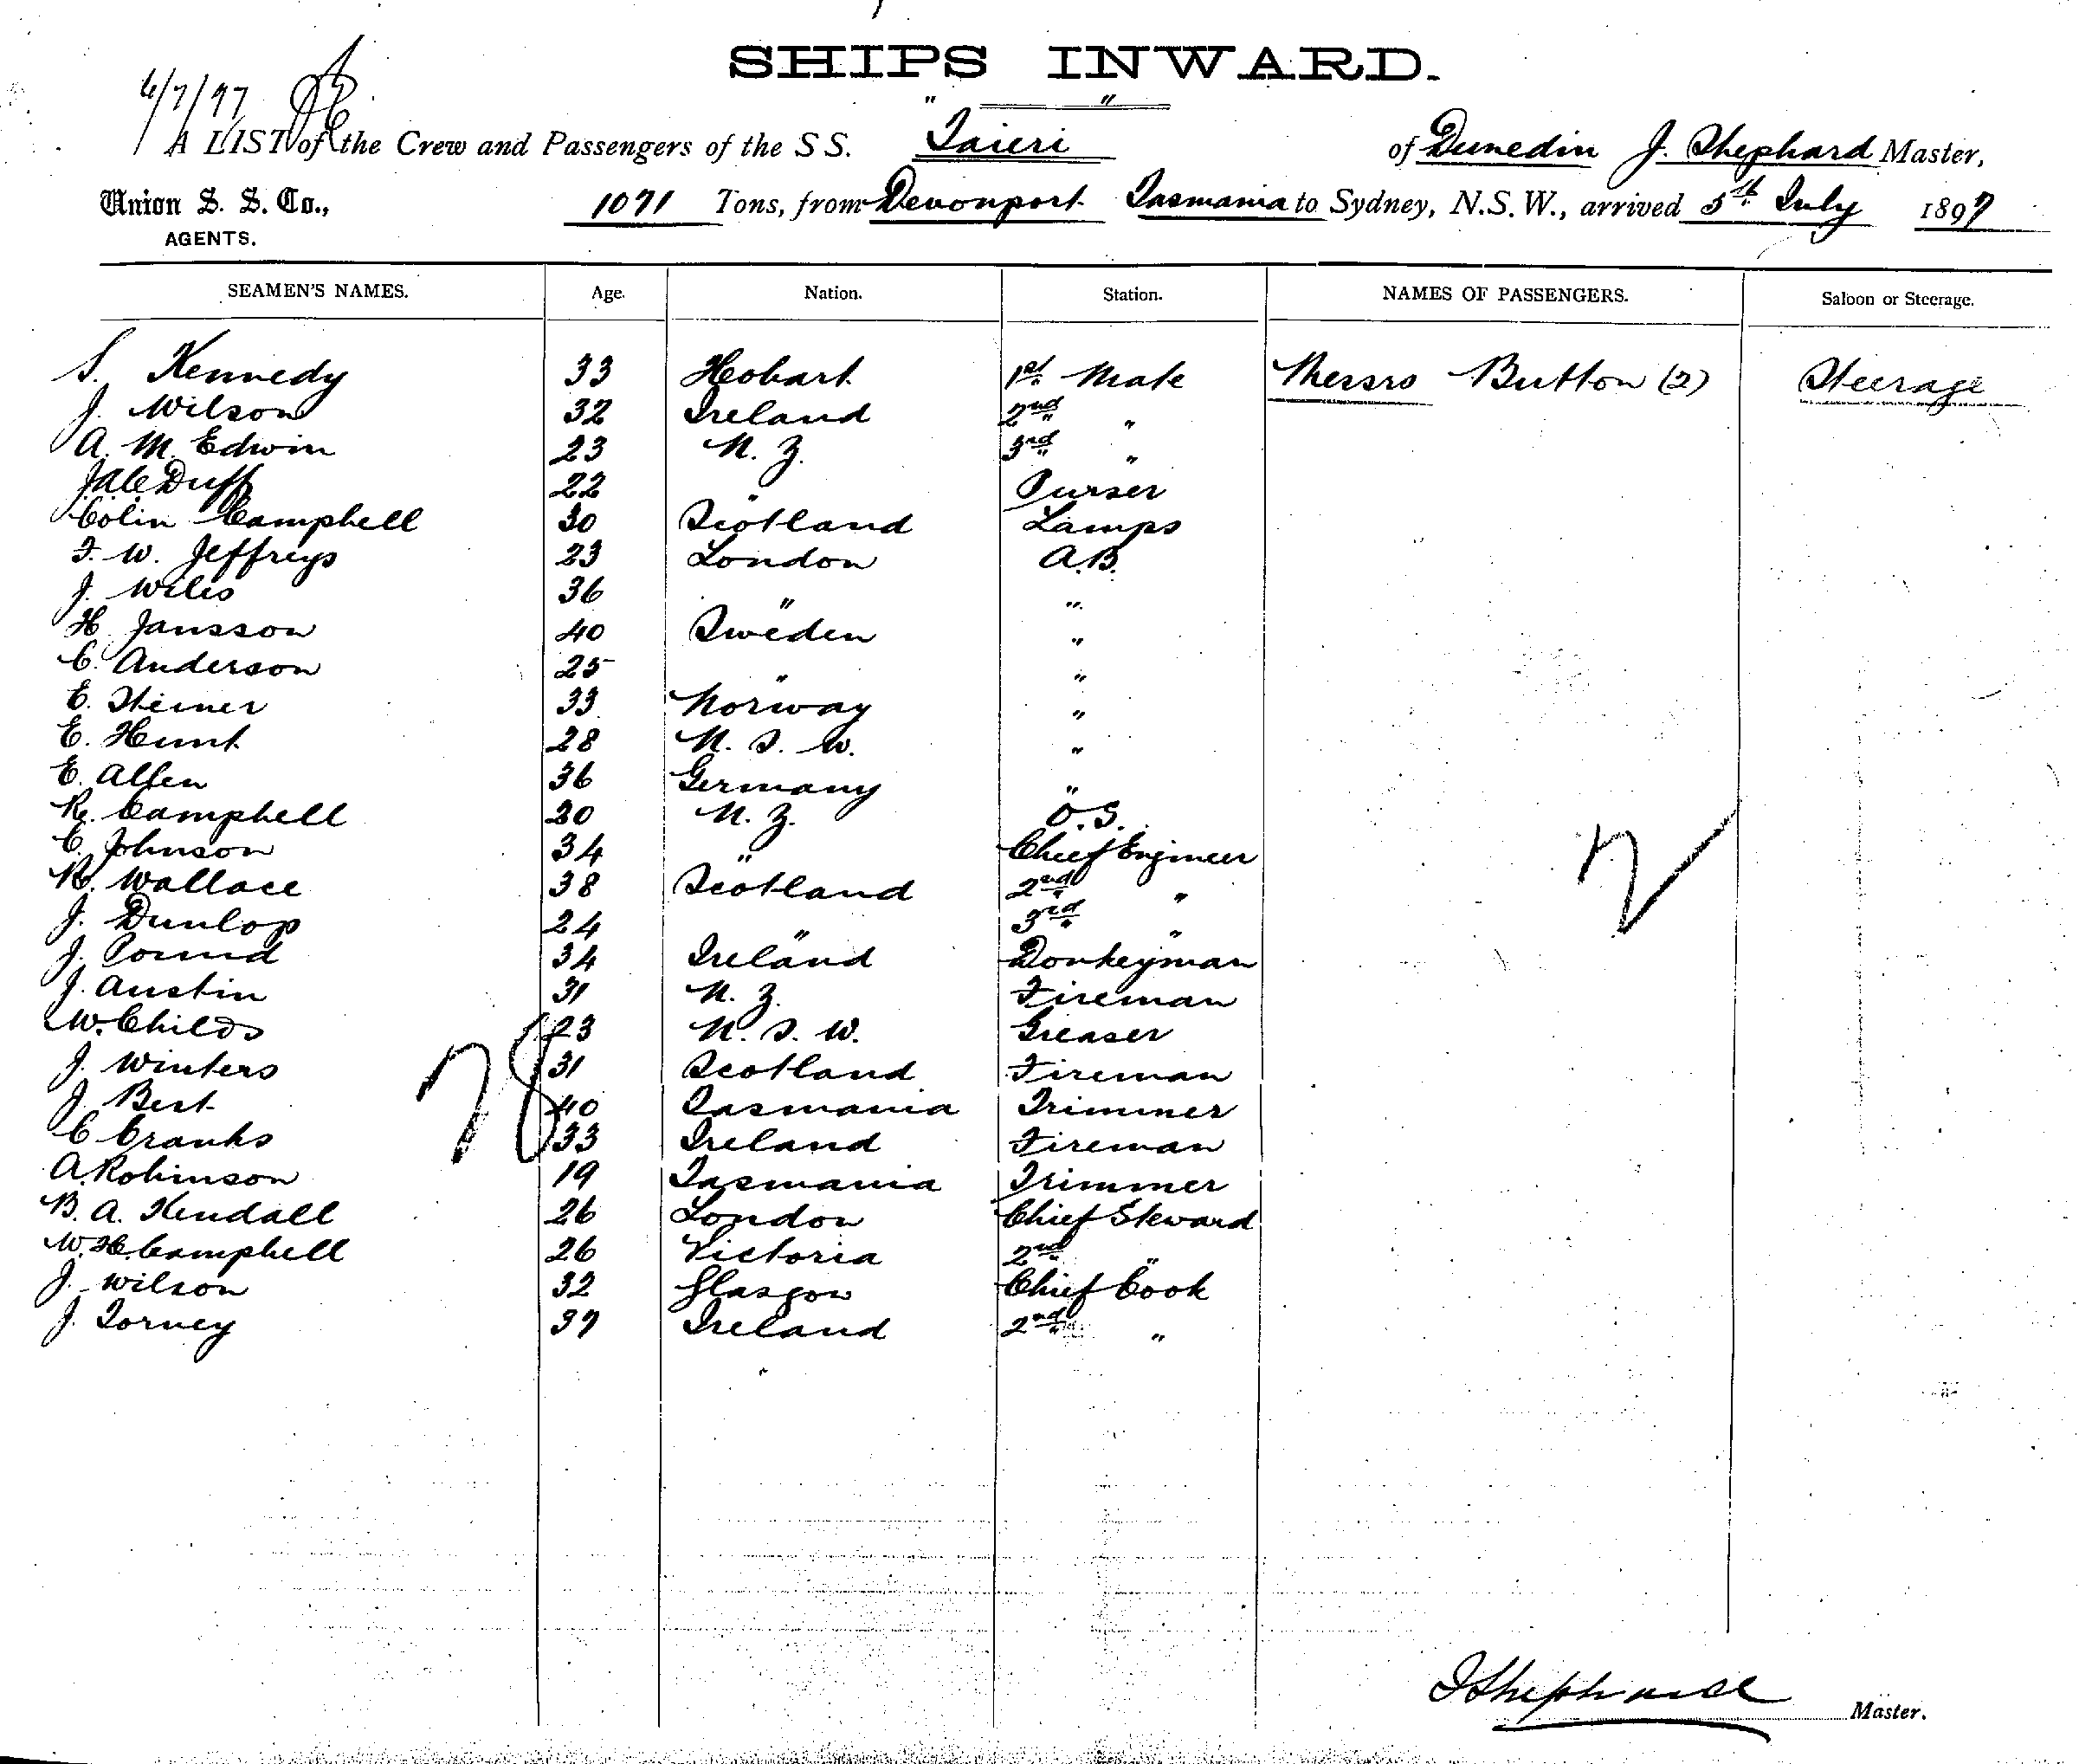 SHIPS INWARD.
6/7/97
A LIST of the Crew and Passengers of the S S. "Taieri" of Dunedin J. Shephard Master,
Union S. S. Co., AGENTS. 1071 Tons, from Devonport Tasmania to Sydney, N.S.W., arrived 5th July 1897
SEAMEN'S NAMES. Age. Nation. Station. NAMES OF PASSENGERS. Saloon or Steerage.
S. Kennedy 33 Hobart 1st Mate Messrs Button (2) Steerage
J. Wilson 32 Ireland 2nd "
A. M. Edwin 23 N. Z. 3rd "
Duff 22 " Purser
Colin Campbell 30 Scotland Lamps
F. W. Jeffreys 23 London A.B.
J. Wiles 36 " "
H. Jansson 40 Sweden "
C. Anderson 25 " "
E. Steiner 33 Norway "
E. Hunt 28 N. S. W. "
E. Allen 36 Germany "
R. Campbell 20 N. Z. O.S.
C. Johnson 34 " Chief Engineer
R. Wallace 38 Scotland 2nd "
J. Dunlop 24 " 3rd "
J. Pound 34 Ireland Donkeyman
J. Austin 31 N. Z. Fireman
W. Childs 23 N. S. W. Greaser
J. Winters 31 Scotland Fireman
J. Best 40 Tasmania Trimmer
C Cranks 33 Ireland Fireman
A. Robinson 19 Tasmania Trimmer
B. A. Kendall 26 London Chief Steward
W. H. Campbell 26 Victoria 2nd "
J. Wilson 32 Glasgow Chief Cook
J. Torney 37 Ireland 2nd "
28
2
J Shephard Master.